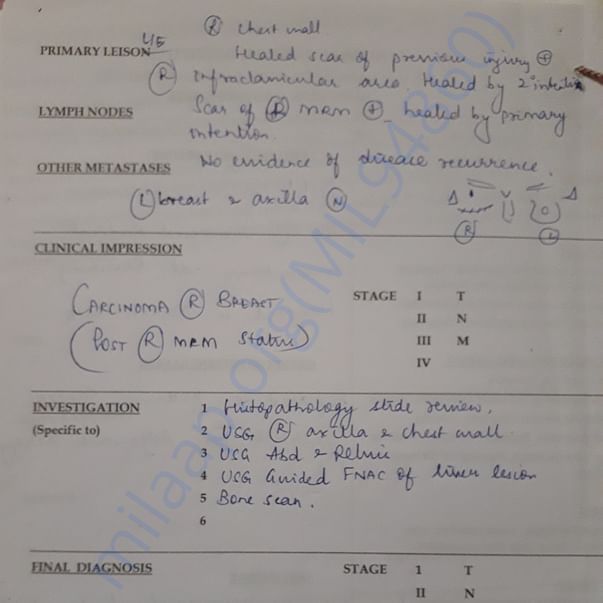 L/E
Ⓡ chest wall
PRIMARY LEISON Healed scar of previous injury ⊕
Ⓡ infraclavicular area healed by 2° intention
LYMPH NODES Scar of Ⓡ MRM ⊕ healed by primary
intention.
OTHER METASTASES No evidence of disease recurrence.
Ⓛ breast & axilla Ⓝ
Ⓡ Ⓛ
CLINICAL IMPRESSION
CARCINOMA Ⓡ BREAST STAGE I T
II N
(POST Ⓡ MRM Status) III M
IV
INVESTIGATION 1 Histopathology slide review.
(Specific to) 2 USG Ⓡ axilla & chest wall
3 USG Abd & Pelvis
4 USG Guided FNAC of liver lesion
5 Bone scan.
6
FINAL DIAGNOSIS STAGE 1 T
II N
milaap.org(MIL94860)